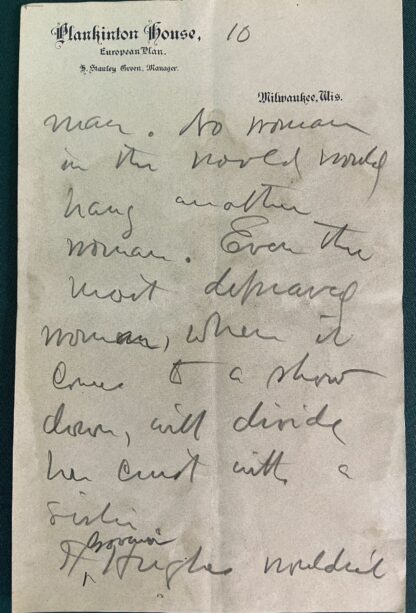 Plankinton House,
10
European Plan.
H. Stanley Green, Manager.
Milwaukee, Wis.
man. No woman
in the world would
hang another
woman. Even the
most depraved
woman, when it
comes to a show
down, will divide
her crust with a
sister
If Governor
Hughes wouldn't